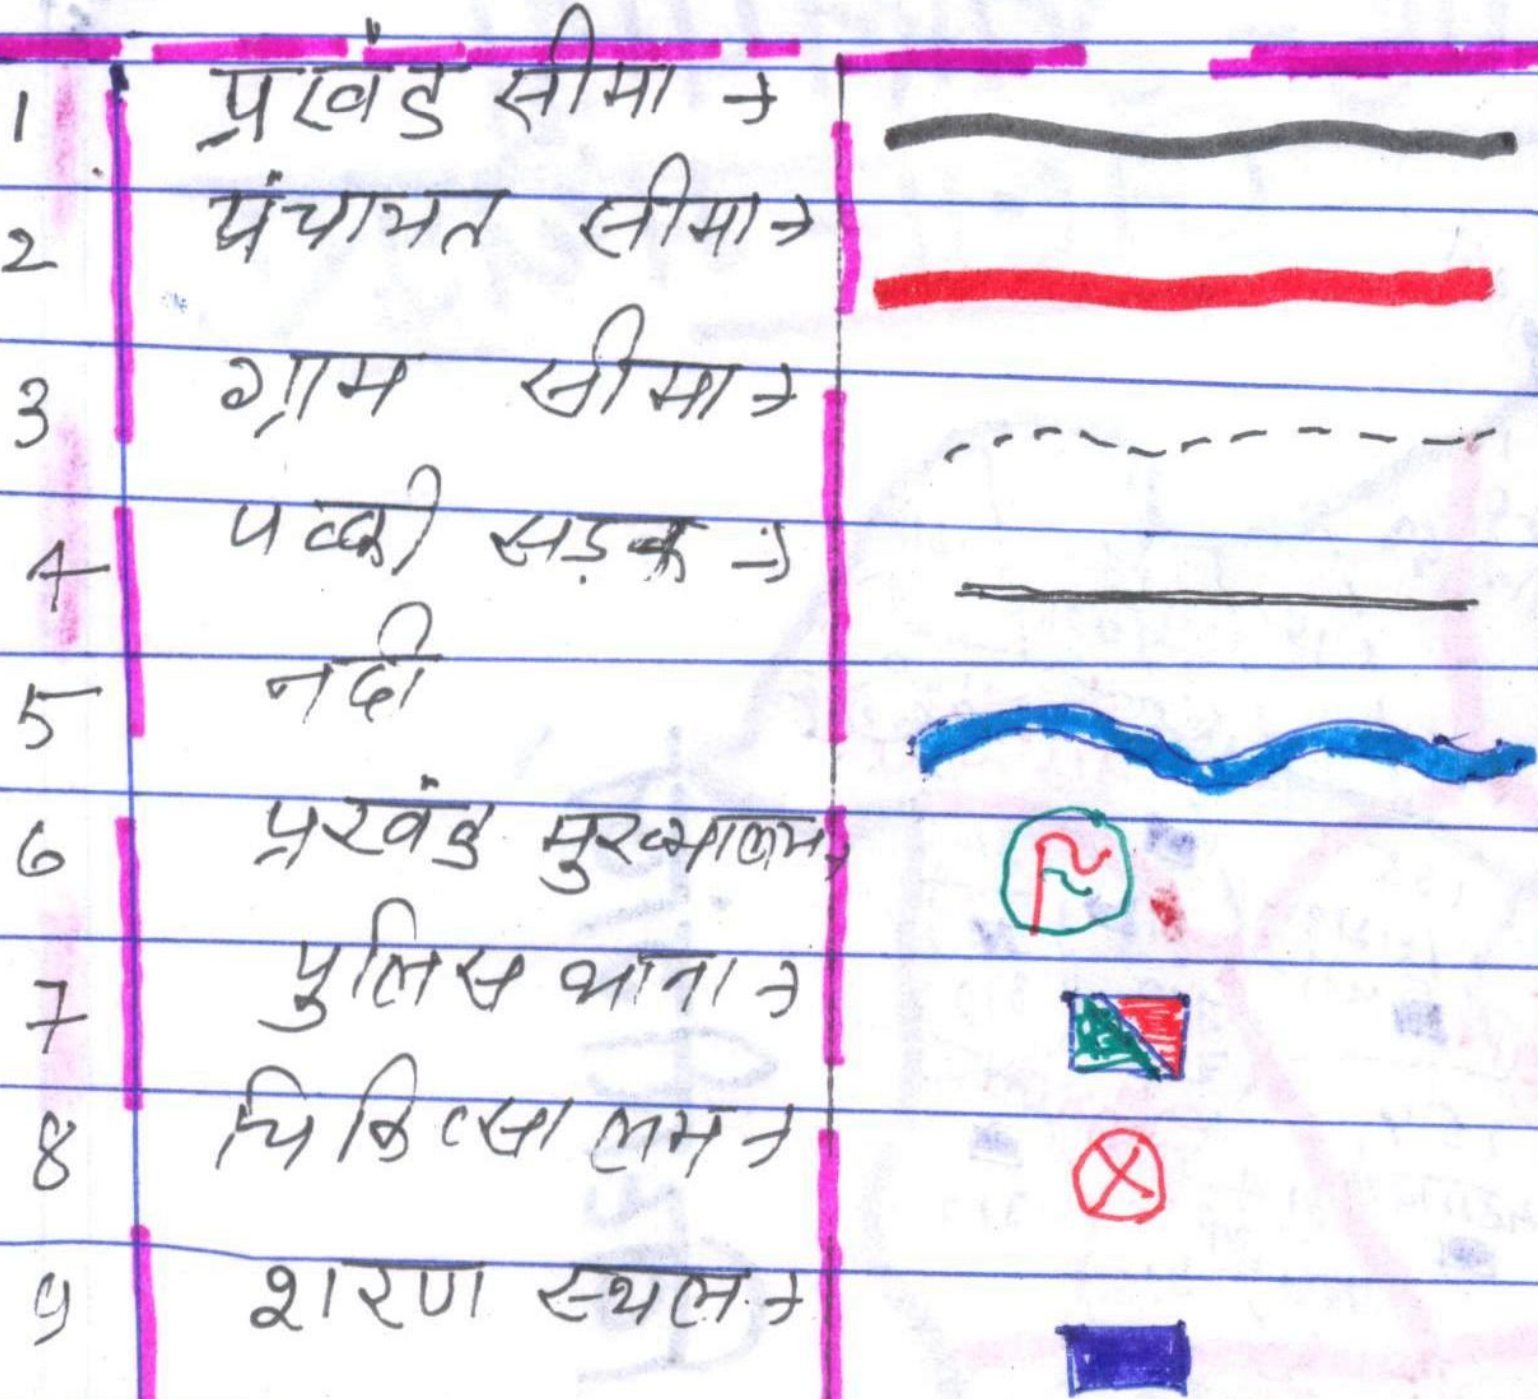 1 प्रखंड सीमा →
2 पंचायत सीमा →
3 ग्राम सीमा →
4 पक्की सड़क →
5 नदी
6 प्रखंड मुख्यालय →
7 पुलिस थाना →
8 चिकित्सालय →
9 शरण स्थल →